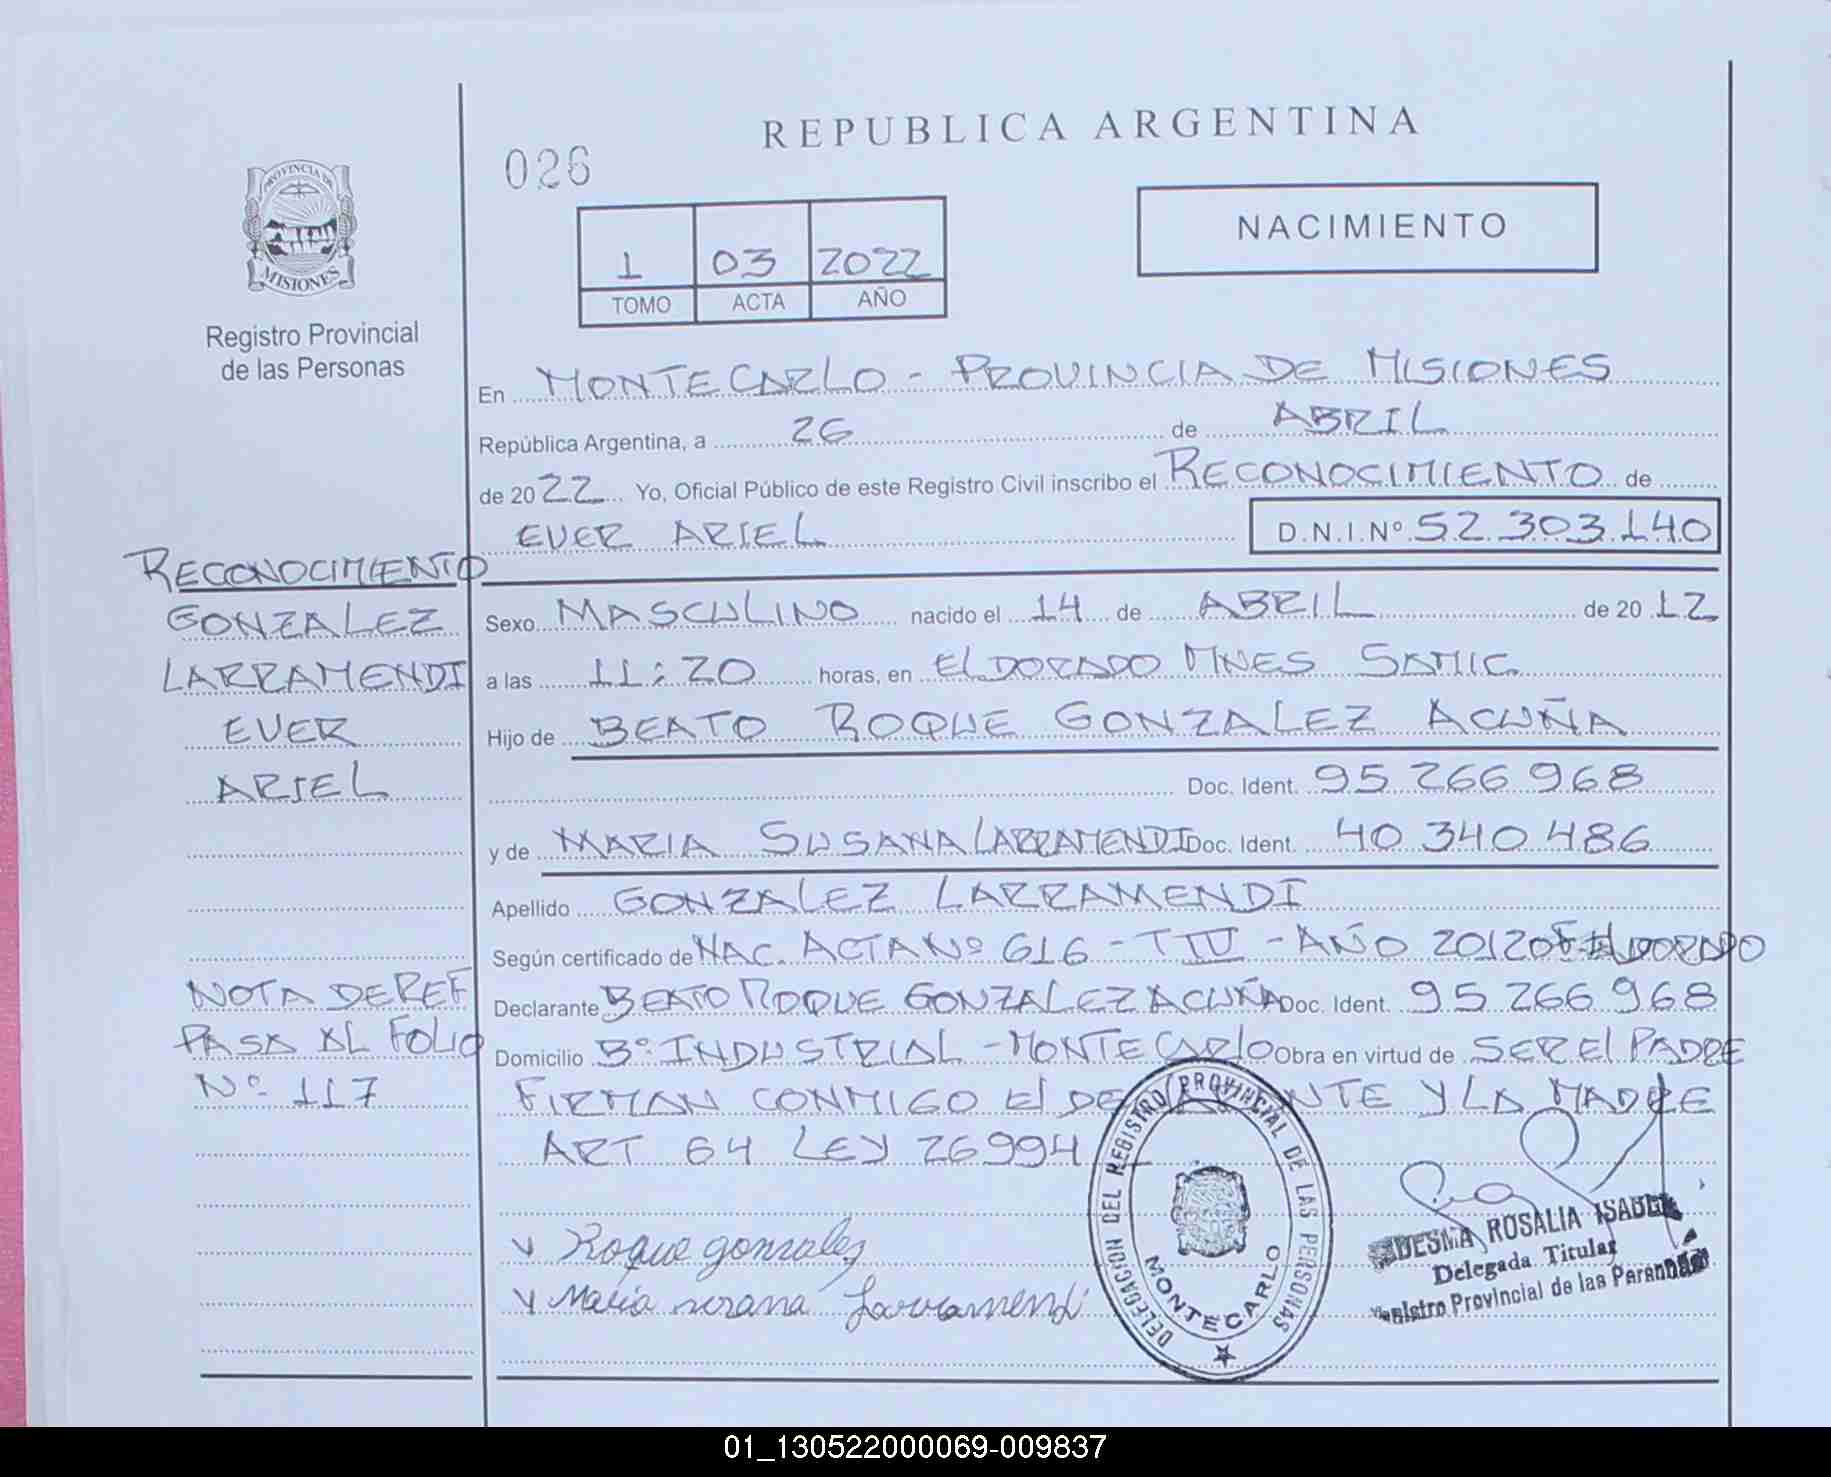 REPUBLICA ARGENTINA
026
NACIMIENTO
1 03 2022
TOMO ACTA AÑO
PROVINCIA DE
MISIONES
Registro Provincial
de las Personas
En MONTECARLO - PROVINCIA DE MISIONES
República Argentina, a 26 de ABRIL
de 2022 Yo, Oficial Público de este Registro Civil inscribo el RECONOCIMIENTO de
EVER ARIEL D.N.I.Nº 52.303.140
RECONOCIMIENTO
GONZALEZ
LARRAMENDI
EVER
ARIEL
Sexo MASCULINO nacido el 14 de ABRIL de 2012
a las 11:20 horas, en ELDORADO MNES SAMIC
Hijo de BEATO ROQUE GONZALEZ ACUÑA
Doc. Ident. 95.266.968
y de MARIA SUSANA LARRAMENDI Doc. Ident. 40 340 486
Apellido GONZALEZ LARRAMENDI
Según certificado de NAC. ACTA Nº 616 - T IV - AÑO 2012 ELDORADO
NOTA DE REF
PASA AL FOLIO
Nº 117
Declarante BEATO ROQUE GONZALEZ ACUÑA Doc. Ident. 95.266.968
Domicilio Bº INDUSTRIAL - MONTECARLO Obra en virtud de SER El PADRE
FIRMAN CONMIGO El Y LA MADRE
ART 64 LEY 26994
Roque gonzalez
Maria susana Larramendi
DELEGACION DEL REGISTRO PROVINCIAL DE LAS PERSONAS
MONTECARLO
ROSALIA ISABEL
Delegada Titular
Registro Provincial de las Personas
01_130522000069-009837